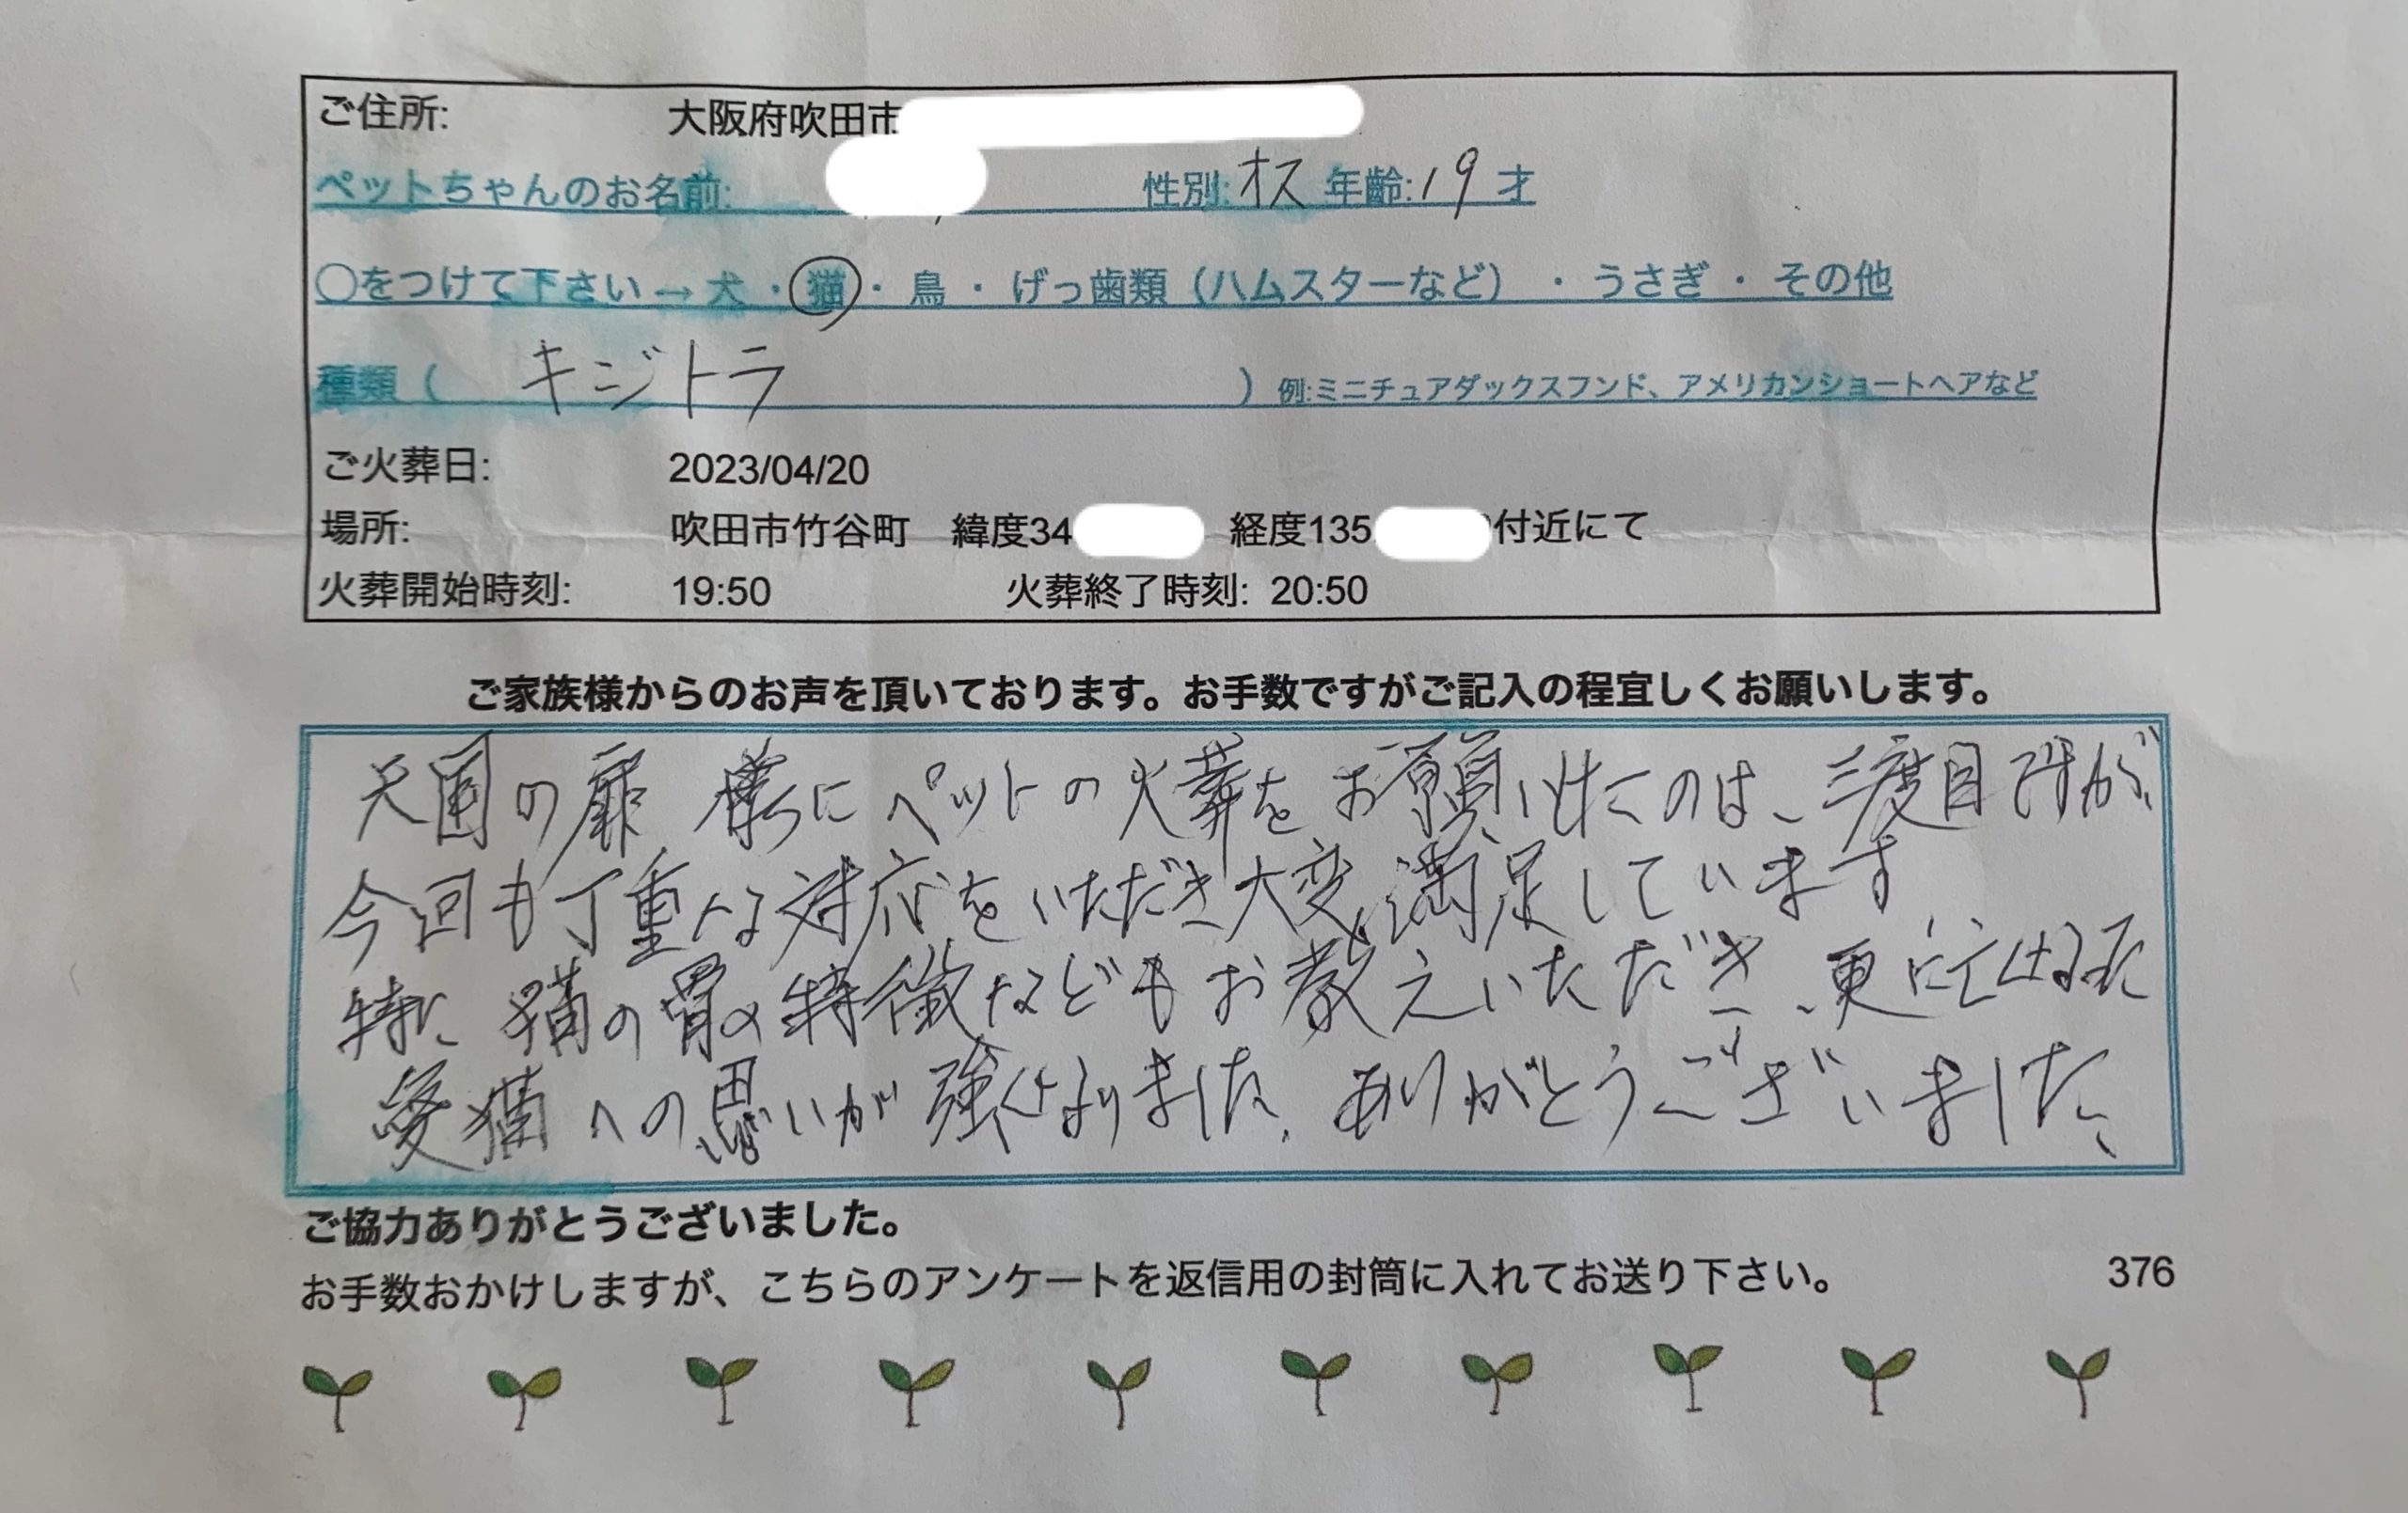 ご住所: 大阪府吹田市
ペットちゃんのお名前: 性別:オス 年齢:19才
〇をつけて下さい→犬・猫・鳥・げっ歯類（ハムスターなど）・うさぎ・その他
種類（ キジトラ ）例:ミニチュアダックスフンド、アメリカンショートヘアなど
ご火葬日: 2023/04/20
場所: 吹田市竹谷町 緯度34 経度135 付近にて
火葬開始時刻: 19:50 火葬終了時刻: 20:50
ご家族様からのお声を頂いております。お手数ですがご記入の程宜しくお願いします。
天国の扉 様にペットの火葬をお願いしたのは、三度目ですが、
今回も丁重なる対応をいただき大変満足しています
特に猫の骨の特徴などもお教えいただき、更に亡くなった
愛猫への思いが強くなりました。ありがとうございました。
ご協力ありがとうございました。
お手数おかけしますが、こちらのアンケートを返信用の封筒に入れてお送り下さい。 376